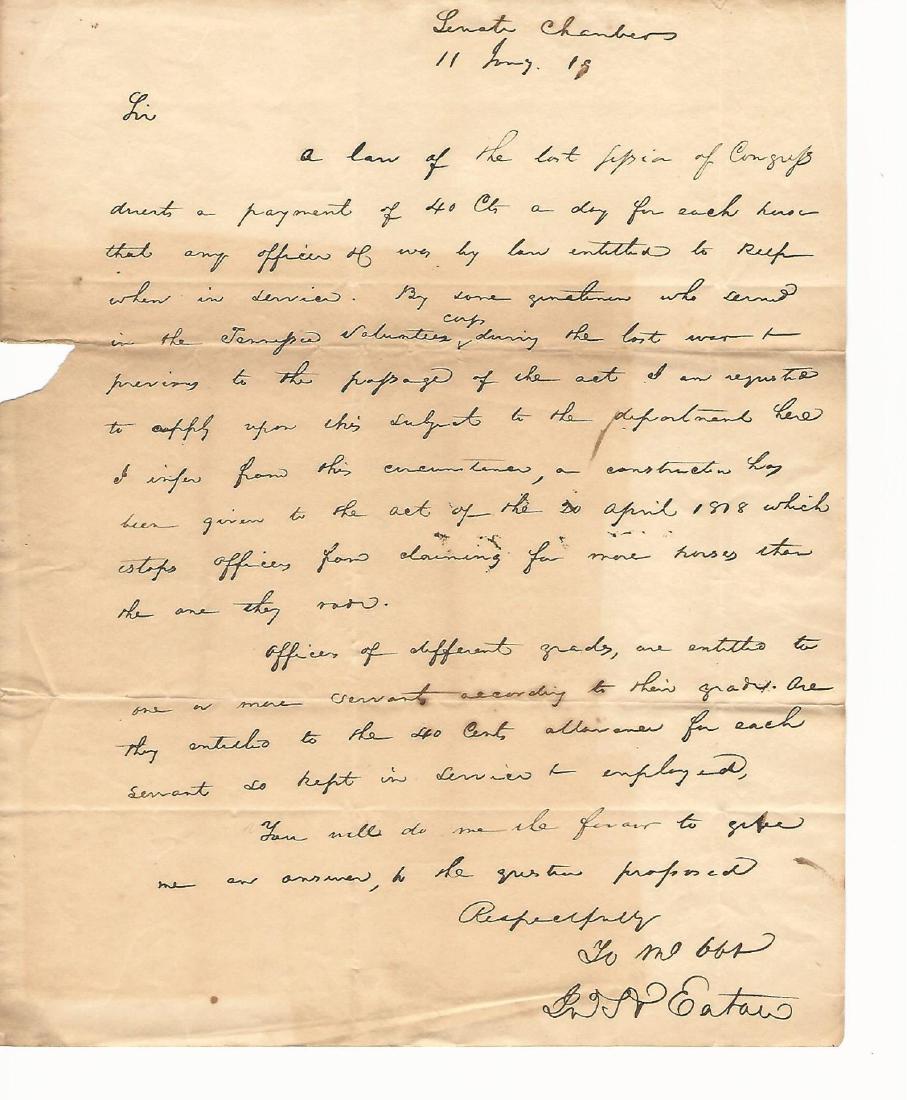 Senate Chambers
11 Jany. 19
Sir
a law of the last session of Congress
directs a payment of 40 Cts a day for each horse
that any officer &c was by law entitled to keep
when in service. By some gentlemen who served
in the Tennessee Volunteers corps, during the last war &
previous to the passage of the act I am requested
to apply upon this subject to the department here
I infer from this circumstance, a construction has
been given to the act of the 20 April 1818 which
estops officers from claiming for more horses than
the one they rode.
Officers of different grades, are entitled to
one or more servants according to their grades. Are
they entitled to the 40 Cents allowance for each
servant so kept in service & employed,
You will do me the favor to give
me an answer, to the question proposed
Respectfully
Yo Mo obt
Jno H Eaton